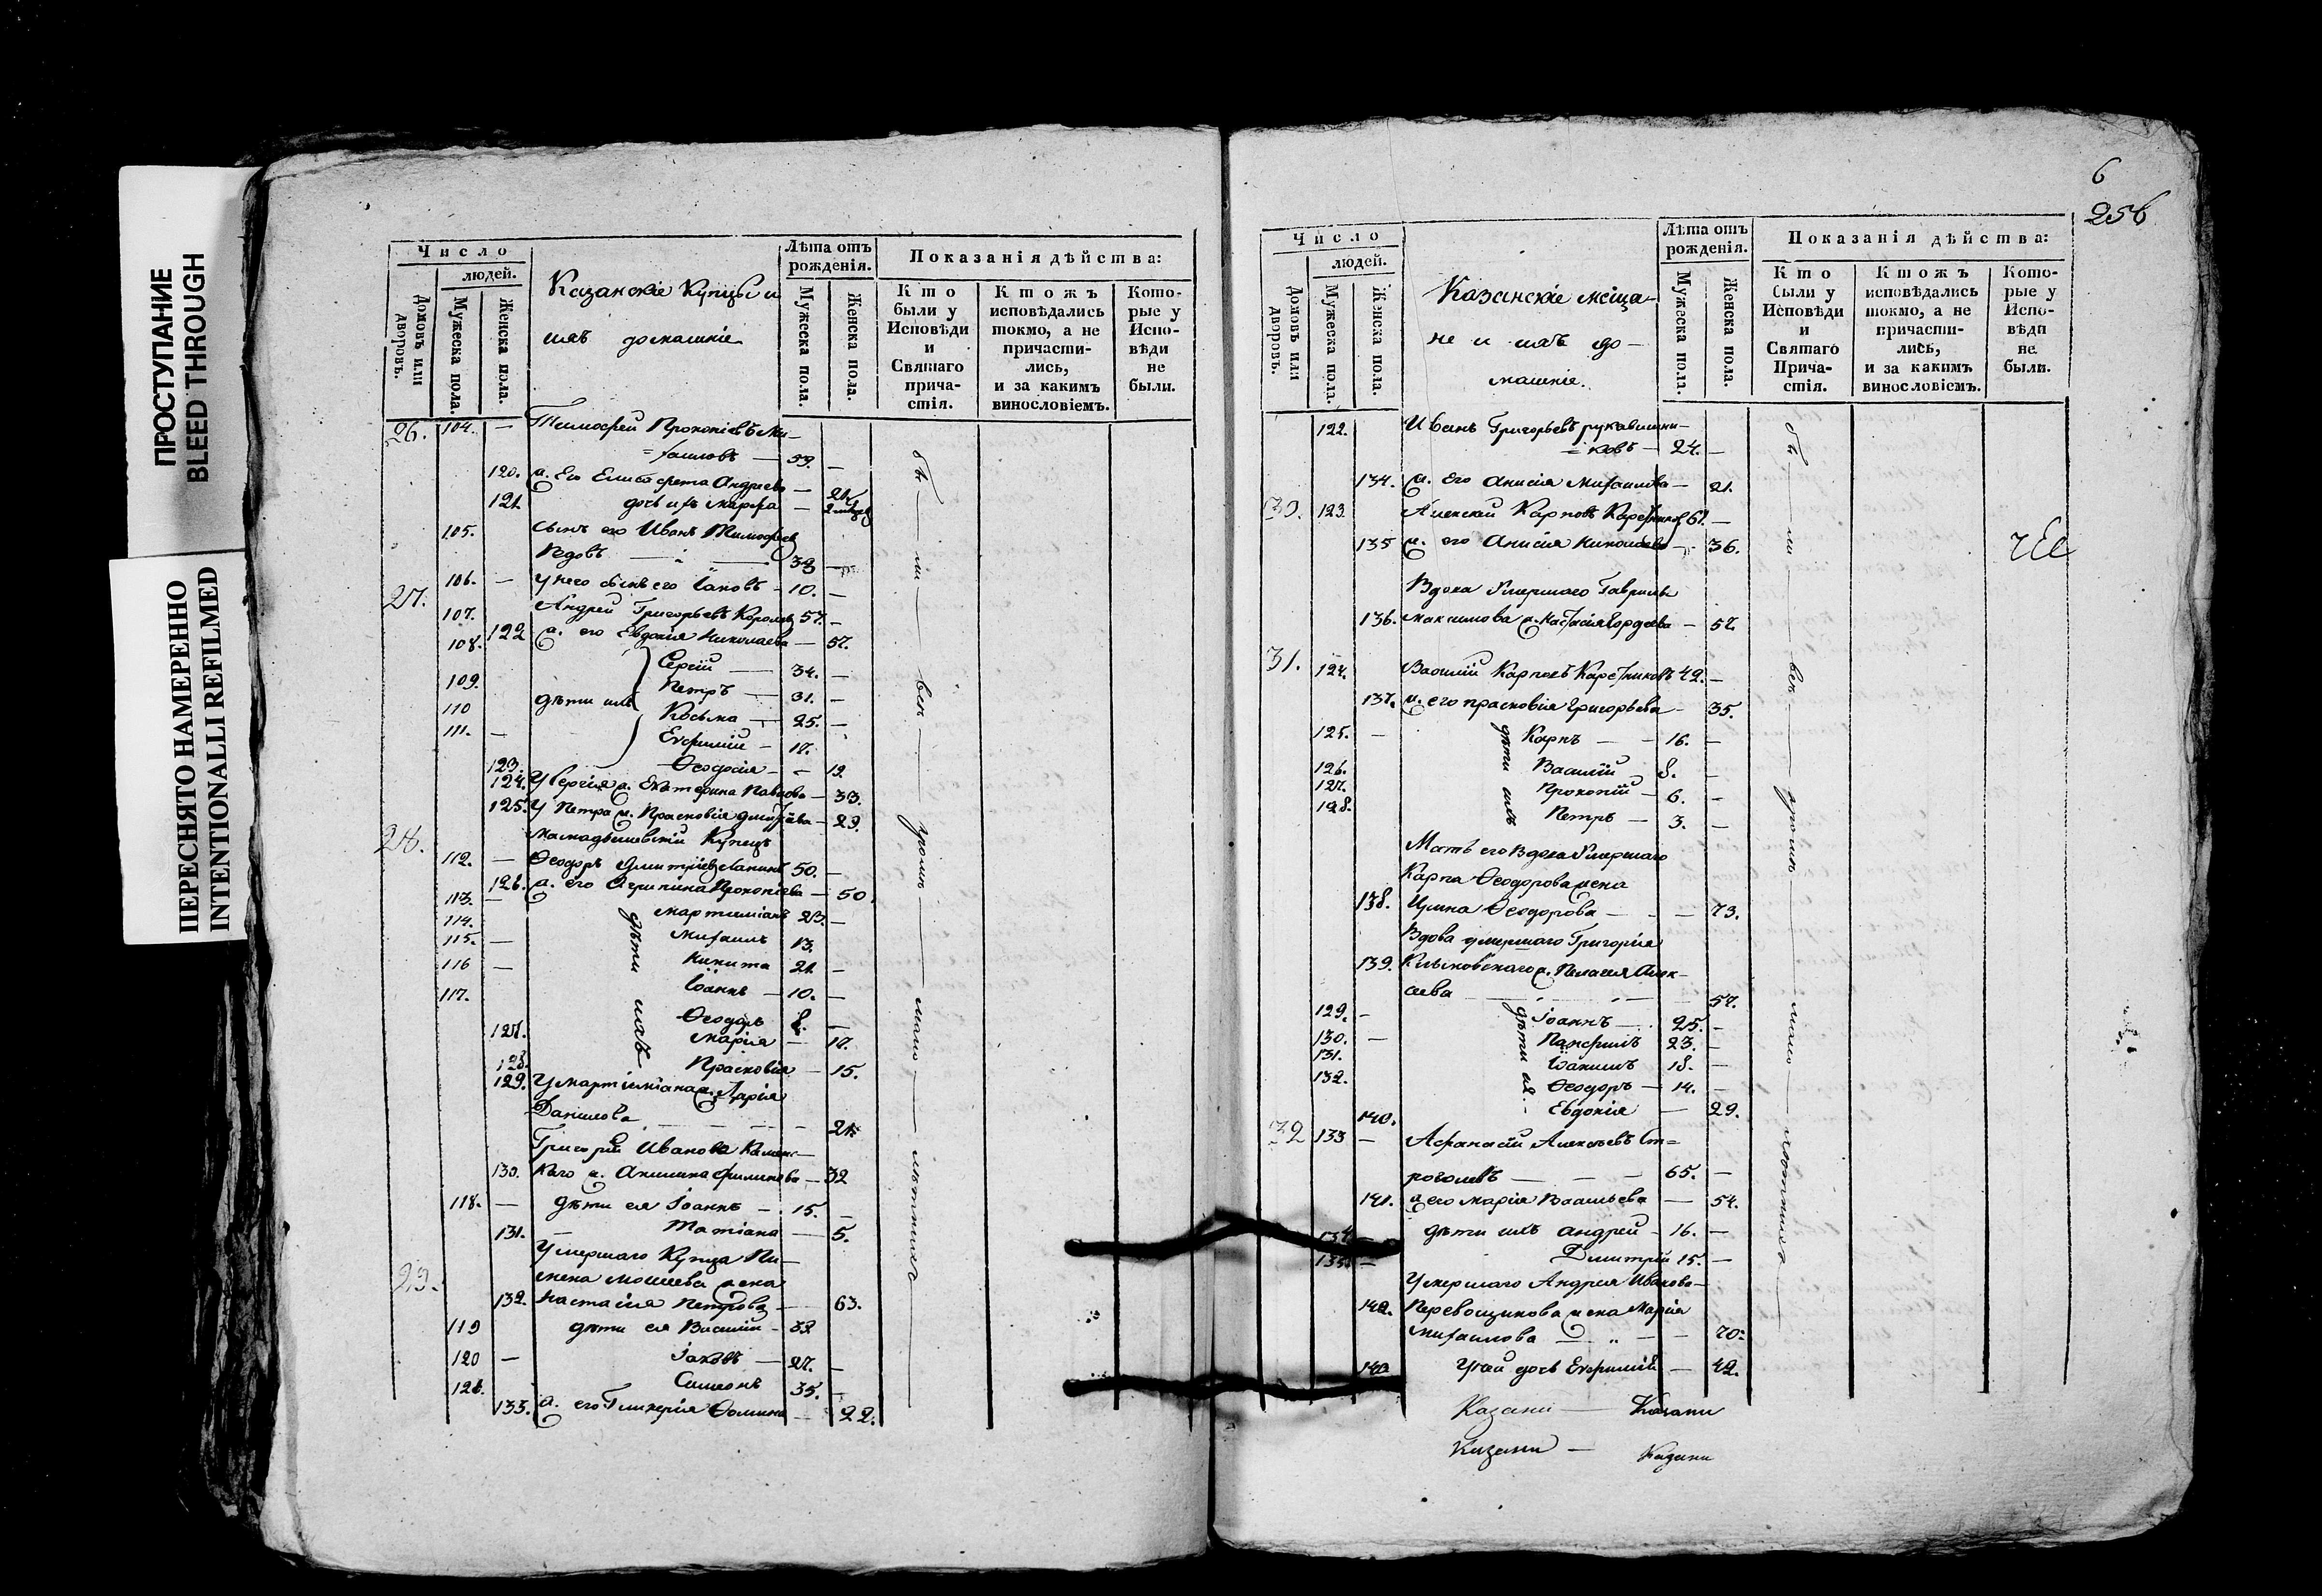 ПРОСТУПАНИЕ
BLEED THROUGH
ПЕРЕСНЯТО НАМЕРЕННО
INTENTIONALLI REFILMED
Число
людей.
Домовъ или дворовъ.
Мужеска пола.
Женска пола.
Казанскіе Купцы и
ихъ домашніе
Лѣта отъ рожденія.
Мужеска пола.
Женска пола.
Показанія дѣйства:
Кто были у Исповѣди и Святаго причастія.
Ктожъ исповѣдались токмо, а не причастились, и за какимъ винословіемъ.
Которые у Исповѣди не были.
26. 104. — Тимофей Прокопіевъ Ми-
=хаиловъ — 59. —
120. ж. Его Елисавета Андреева —
121. дочь ихъ Марфа —
105. Сынъ его Иванъ Тимофеев
вдовъ — 38 —
106. — У него сынъ его Іаковъ - 10. —
27. 107. Андрей Григорьевъ Королев 57. —
108. 122 ж. его Евдокія Николаева — 57.
Сергій — 34. —
109. Петръ — 31. —
110 дѣти ихъ Косьма — 25. —
111. — Евфимій - 17.
123. Ѳеодосія - - 19.
124. У Сергія ж. Екатерина Павлова — 33.
125. У Петра ж. Прасковія Дмитріева — 29.
28. Мамадышевскій Купецъ
112. — Ѳеодоръ Дмитріев Лапинъ 50. —
126. ж. его Агрипина Прокопіева — 50.
113. — Мартиніанъ 23. —
114. Михаилъ 13.
115. — дѣти Никита 21. —
116 — Іоаннъ — 10. —
117. ихъ Ѳеодоръ 8. —
127. Марія — 17.
128. Прасковія — 15.
129. У Мартиніана ж. Дарія
Данилова — 21.
Григорій Иванова Каменс-
130. каго ж. Акилина Филипова — 32
118. — дѣти ея Іоаннъ — 15. —
131. — Татіана — 5.
29. Умершаго Купца Пи-
мена Моисеева жена
132. Настасія Петрова — 63.
119 дѣти ея Василій - 32
120 — Іаковъ — 27. —
121. Симеонъ 35. —
133. ж. его Гликерія Ѳомина — 22.
бы — ли — всѣ — уроч — мало — лѣтныхъ
6
256
Число
людей.
Домовъ или дворовъ.
Мужеска пола.
Женска пола.
Казанскіе мѣща-
не и ихъ до-
машніе.
Лѣта отъ рожденія.
Мужеска пола.
Женска пола.
Показанія дѣйства:
Кто были у Исповѣди и Святаго Причастія.
Ктожъ исповѣдались токмо, а не причастились, и за какимъ винословіемъ.
Которые у Исповѣди не были.
122. Иванъ Григорьевъ рукавишни-
=ковъ — 24. —
134. ж. Его Анисія Михаилова — 21.
30. 123. Алексій Карповъ Каретников 61. —
135 ж. его Анисія Николаева — 36.
Вдова Умершаго Гаврилы
136. Максимова ж. Настасія Гордеева — 57.
31. 124. Василій Карповъ Каретниковъ 42. —
137. ж. его прасковія Григорьева — 35.
125. — Карпъ — 16. —
126. дѣти Василій 8. —
127. ихъ Прокопій — 6. —
128. Петръ — 3. —
Мать его Вдова Умершаго
Карпа Ѳеодорова жена
138. Ирина Ѳеодорова — 73.
Вдова умершаго Григорія
139. ж. Пелагея Алек-
сіева — 57.
129. — Іоаннъ — 25. —
130. — дѣти Панфилъ 23. —
131. ея Іоакимъ 18. —
132. Ѳеодоръ — 14. —
140. Евдокія — 29.
32 133 — Афанасій Алексѣевъ Ст=
роголевъ — 65. —
141. ж его Марія Васильева — 54.
134 — дѣти ихъ Андрей - 16. —
135 — Димитрій 15. —
Умершаго Андрея Иванова-
142. Перевощикова жена Марія
Михаилова — 70:
143 У ней дочь Евфимія — 42.
Казани — Казани
Казани — Казани